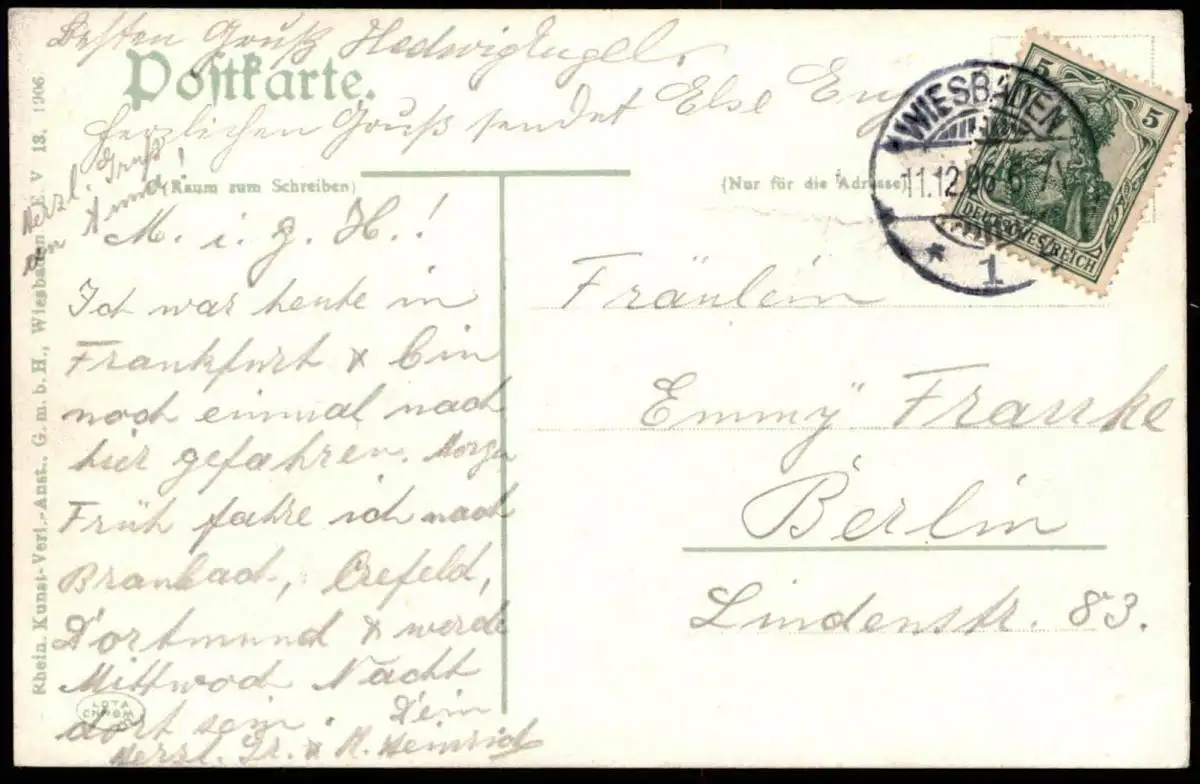 Besten Gruß Hedwig
Postkarte.
Herzlichen Gruß sendet Else
Herzl. Gruß
Anna!
(Raum zum Schreiben)
(Nur für die Adresse)
WIESBADEN
11.12.06.
* 1
5 5
DEUTSCHES REICH
M. i. g. H.!
Ich war heute in
Frankfurt & bin
noch einmal nach
hier gefahren. Morgen
Früh fahre ich nach
Crefeld,
Dortmund & werde
Mittwoch Nacht
dort sein. Dein
Herzl. Gr. & K. Heinrich
Fräulein
Emmy Franke
Berlin
Lindenstr. 83.
Rhein. Kunst-Verl.-Anst., G. m. b. H., Wiesbaden E. V 13. 1906